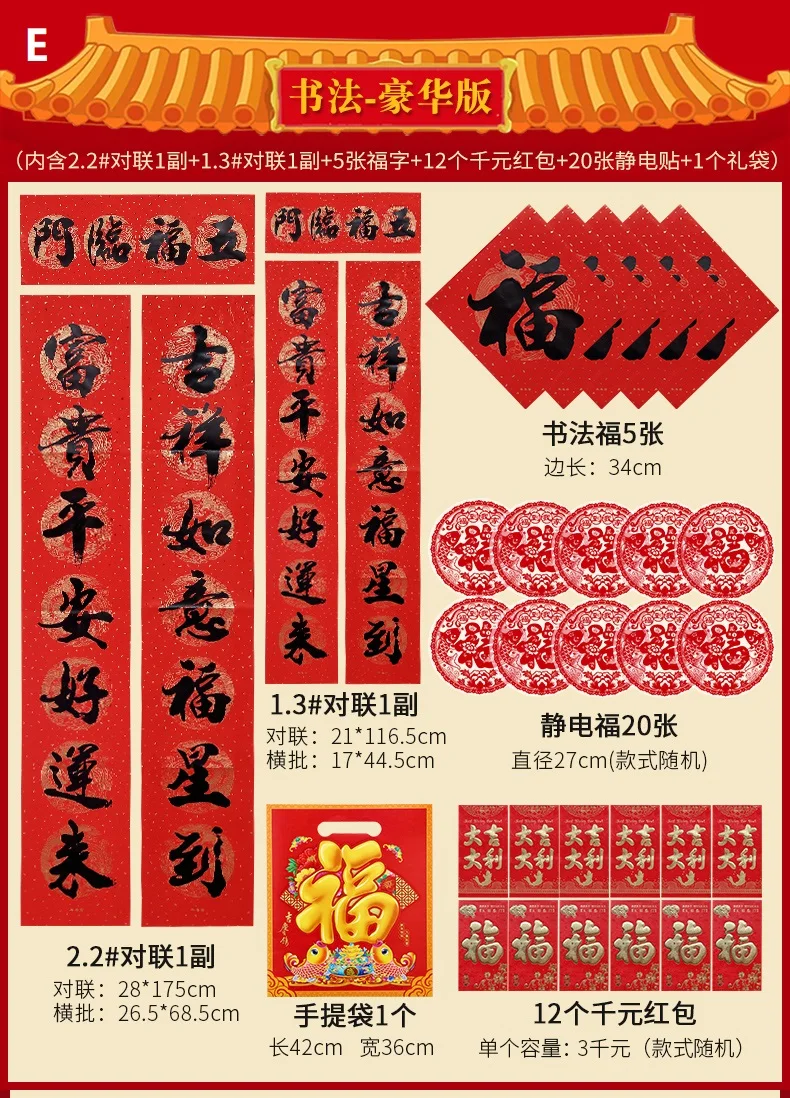 E
书法-豪华版
（内含2.2#对联1副+1.3#对联1副+5张福字+12个千元红包+20张静电贴+1个礼袋）
門臨福五
門臨福五
吉祥如意福星到
富貴平安好運来
吉祥如意福星到
富貴平安好運来
福
书法福5张
边长：34cm
福
福
福
福
福
福
福
福
福
福
静电福20张
直径27cm(款式随机)
1.3#对联1副
对联：21*116.5cm
横批：17*44.5cm
2.2#对联1副
对联：28*175cm
横批：26.5*68.5cm
福
手提袋1个
长42cm 宽36cm
大吉大利
大吉大利
大吉大利
大吉大利
大吉大利
大吉大利
福
福
福
福
福
福
12个千元红包
单个容量：3千元（款式随机）